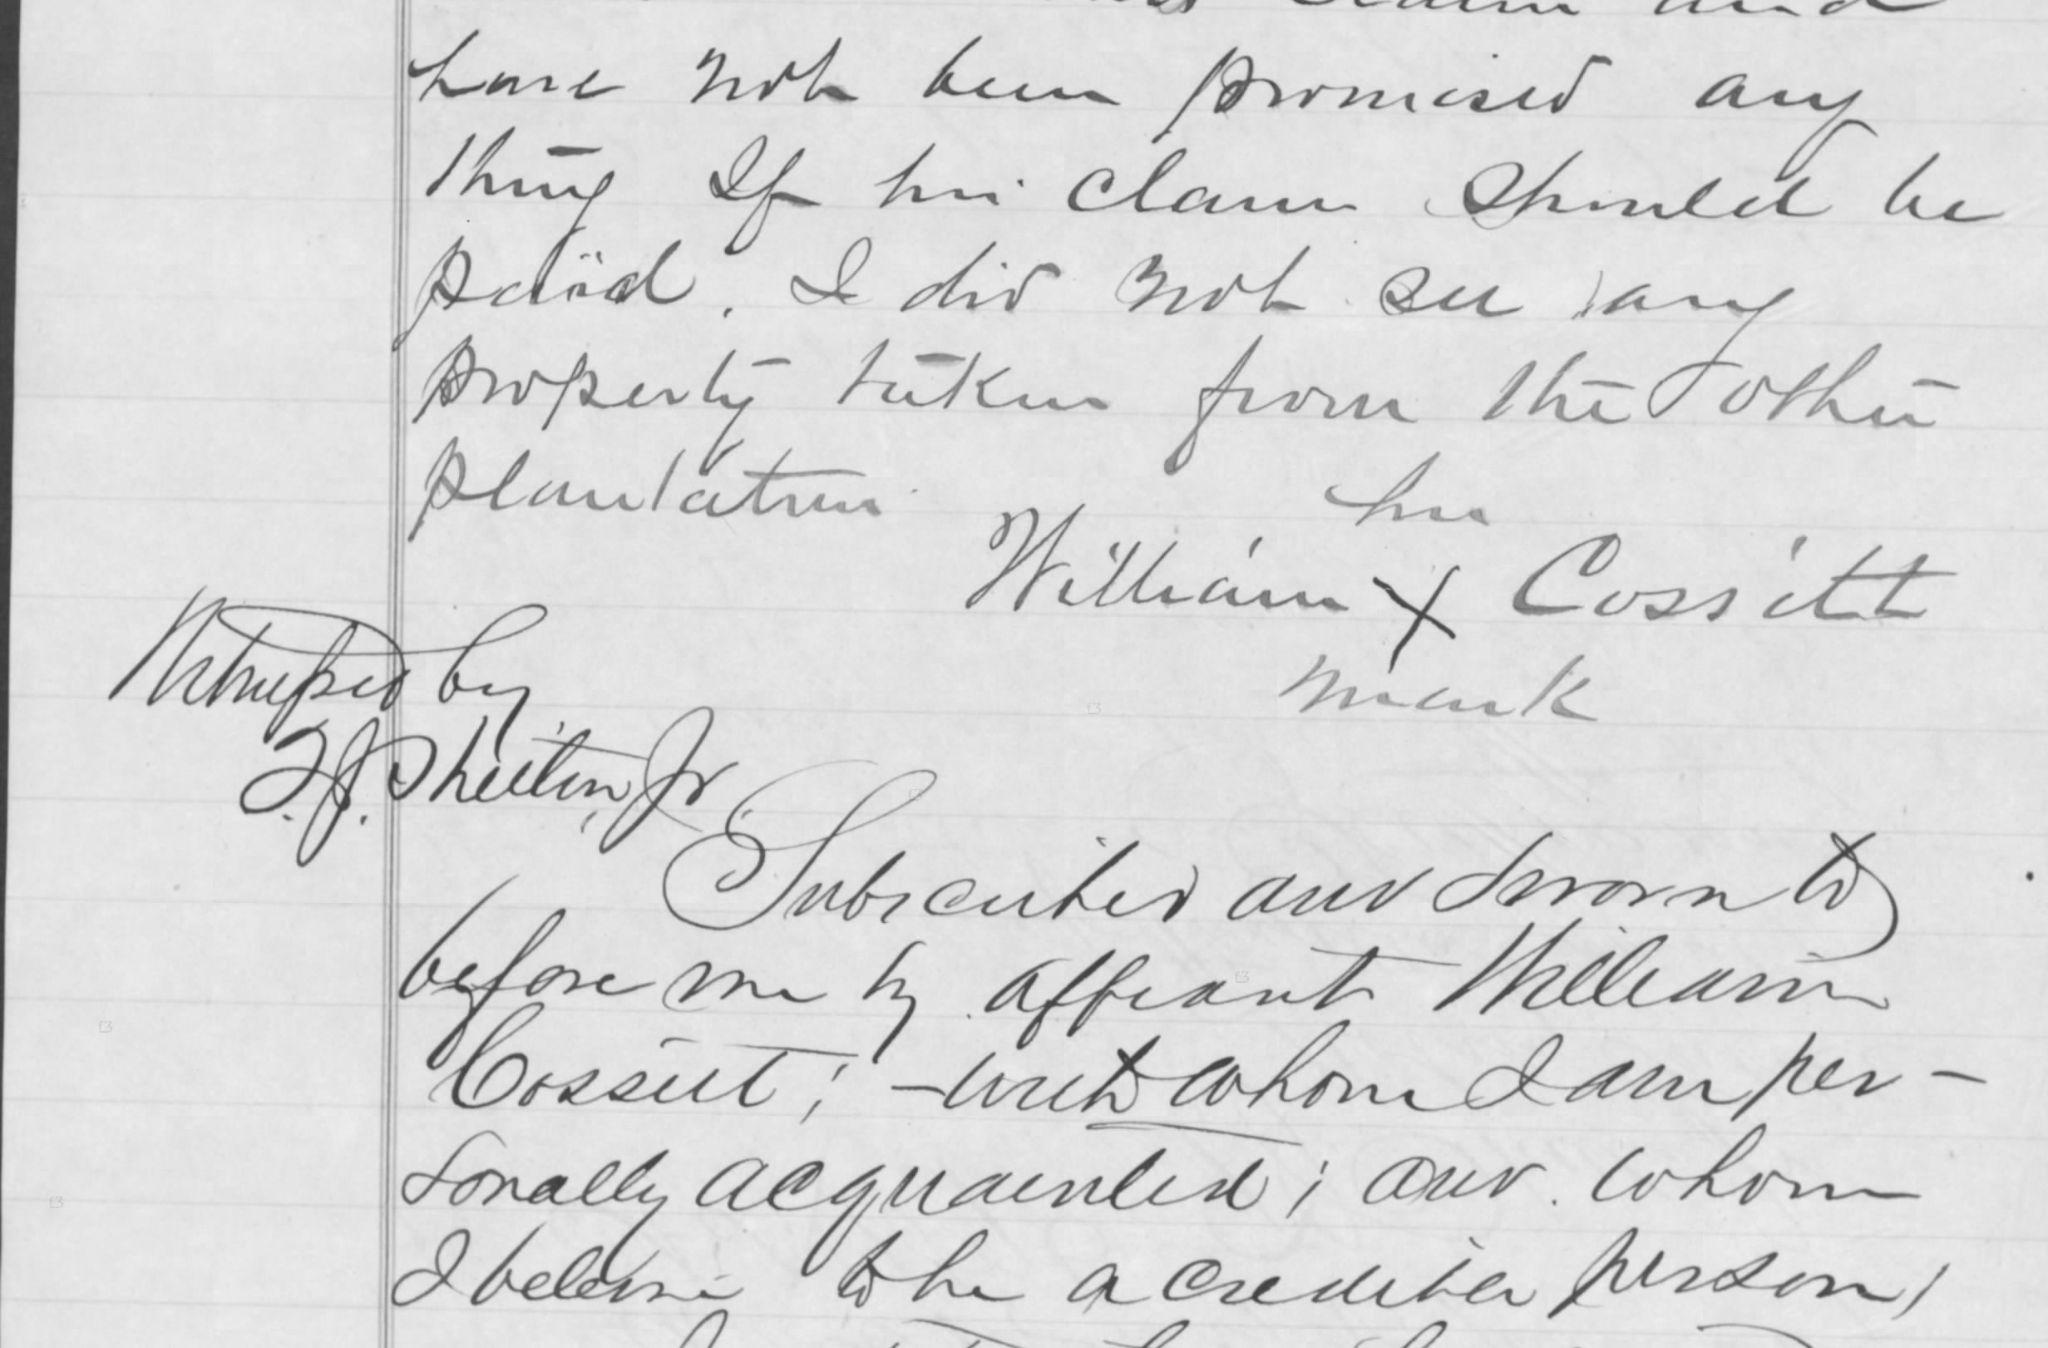 claim and
have not been promised any
thing If his claim should be
paid. I did not see any
property taken from the other
plantation
his
William X Cossitt
mark
Witnessed by
T. J. Shelton, Jr
Subscribed and sworn to
before me by affiant William
Cossitt; - with whom I am per-
sonally acquainted; and whom
I believe to be a credible person,